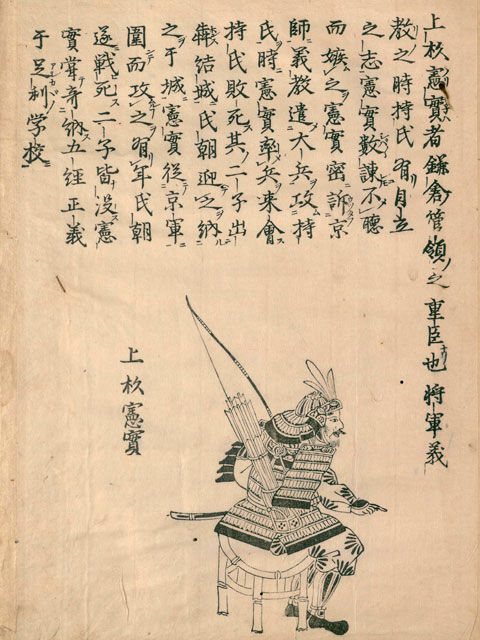 上杦憲實者鎌倉管領之重臣也將軍義
教之時持氏有自立
之志憲實數諫不聽
而嫉之憲實密訴京
師義教遣大兵攻持
氏時憲實率兵来會
持氏敗死其二子出
犇結城氏朝迎之納
之于城憲實從京軍
圍而攻之有年氏朝
遂戰死二子皆没憲
實嘗寄納五經正義
于足利学校
上杦憲實